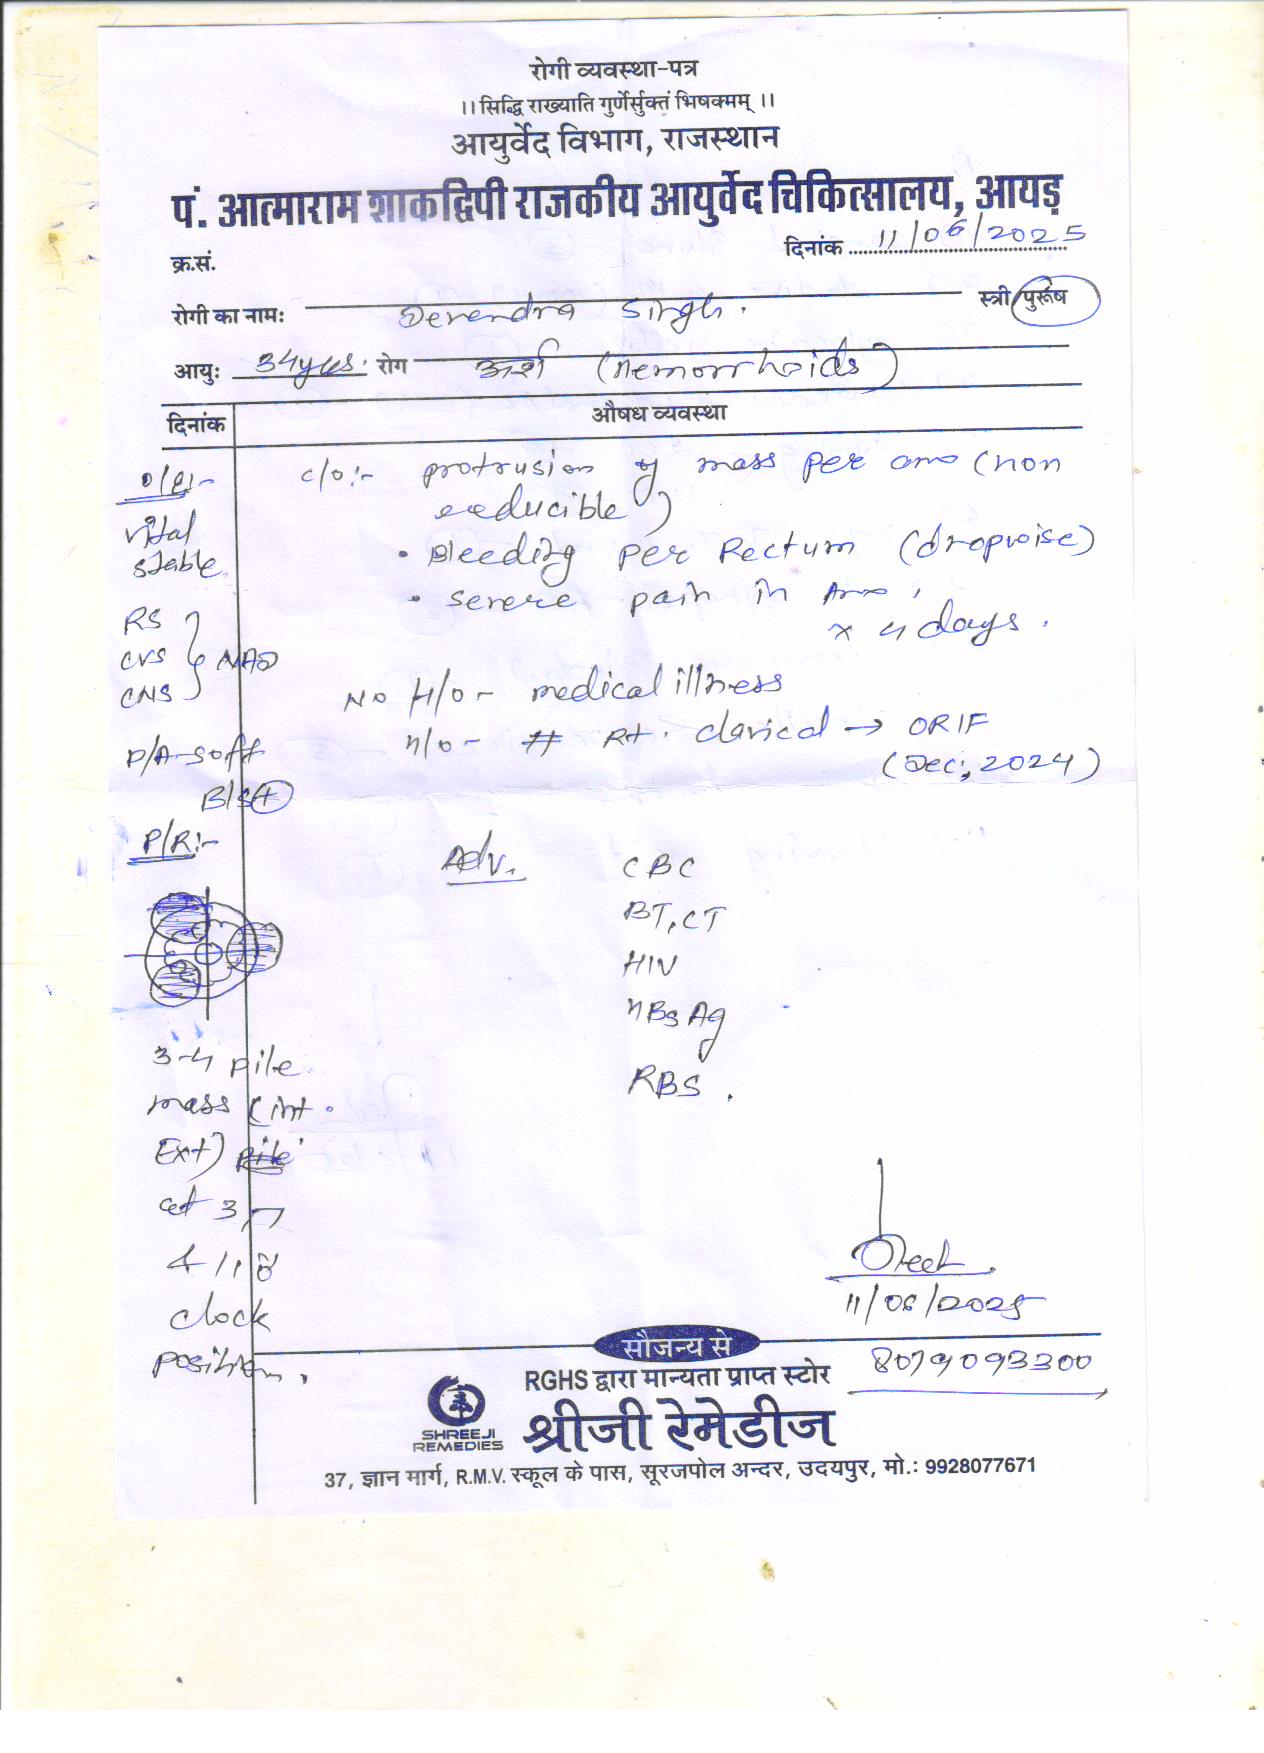 रोगी व्यवस्था-पत्र
।। सिद्धि राख्याति गुर्णेर्सुक्तं भिषक्मम् ।।
आयुर्वेद विभाग, राजस्थान
पं. आत्माराम शाकद्विपी राजकीय आयुर्वेद चिकित्सालय, आयड़
क्र.सं.
दिनांक 11/06/2025
रोगी का नामः Devendra Singh. स्त्री/पुरूष
आयुः 34yrs. रोग अर्श (Hemorrhoids)
दिनांक औषध व्यवस्था
O/E:-
vital
stable.
RS
CVS NAD
CNS
P/A-soft
BS+
P/R:-
3-4 pile
mass (int.
Ext) pile
at 3, 7
& 11
clock
position.
c/o:- protrusion of mass per ano (non
reducible)
• Bleeding per Rectum (dropwise)
• severe pain in Ano,
x 4 days.
No H/O- medical illness
H/O- # Rt. clavical → ORIF
(Dec, 2024)
Adv. CBC
BT, CT
HIV
HBsAg
RBS.
11/06/2025
8079093300
सौजन्य से
RGHS द्वारा मान्यता प्राप्त स्टोर
SHREEJI
REMEDIES
श्रीजी रेमेडीज
37, ज्ञान मार्ग, R.M.V. स्कूल के पास, सूरजपोल अन्दर, उदयपुर, मो.: 9928077671